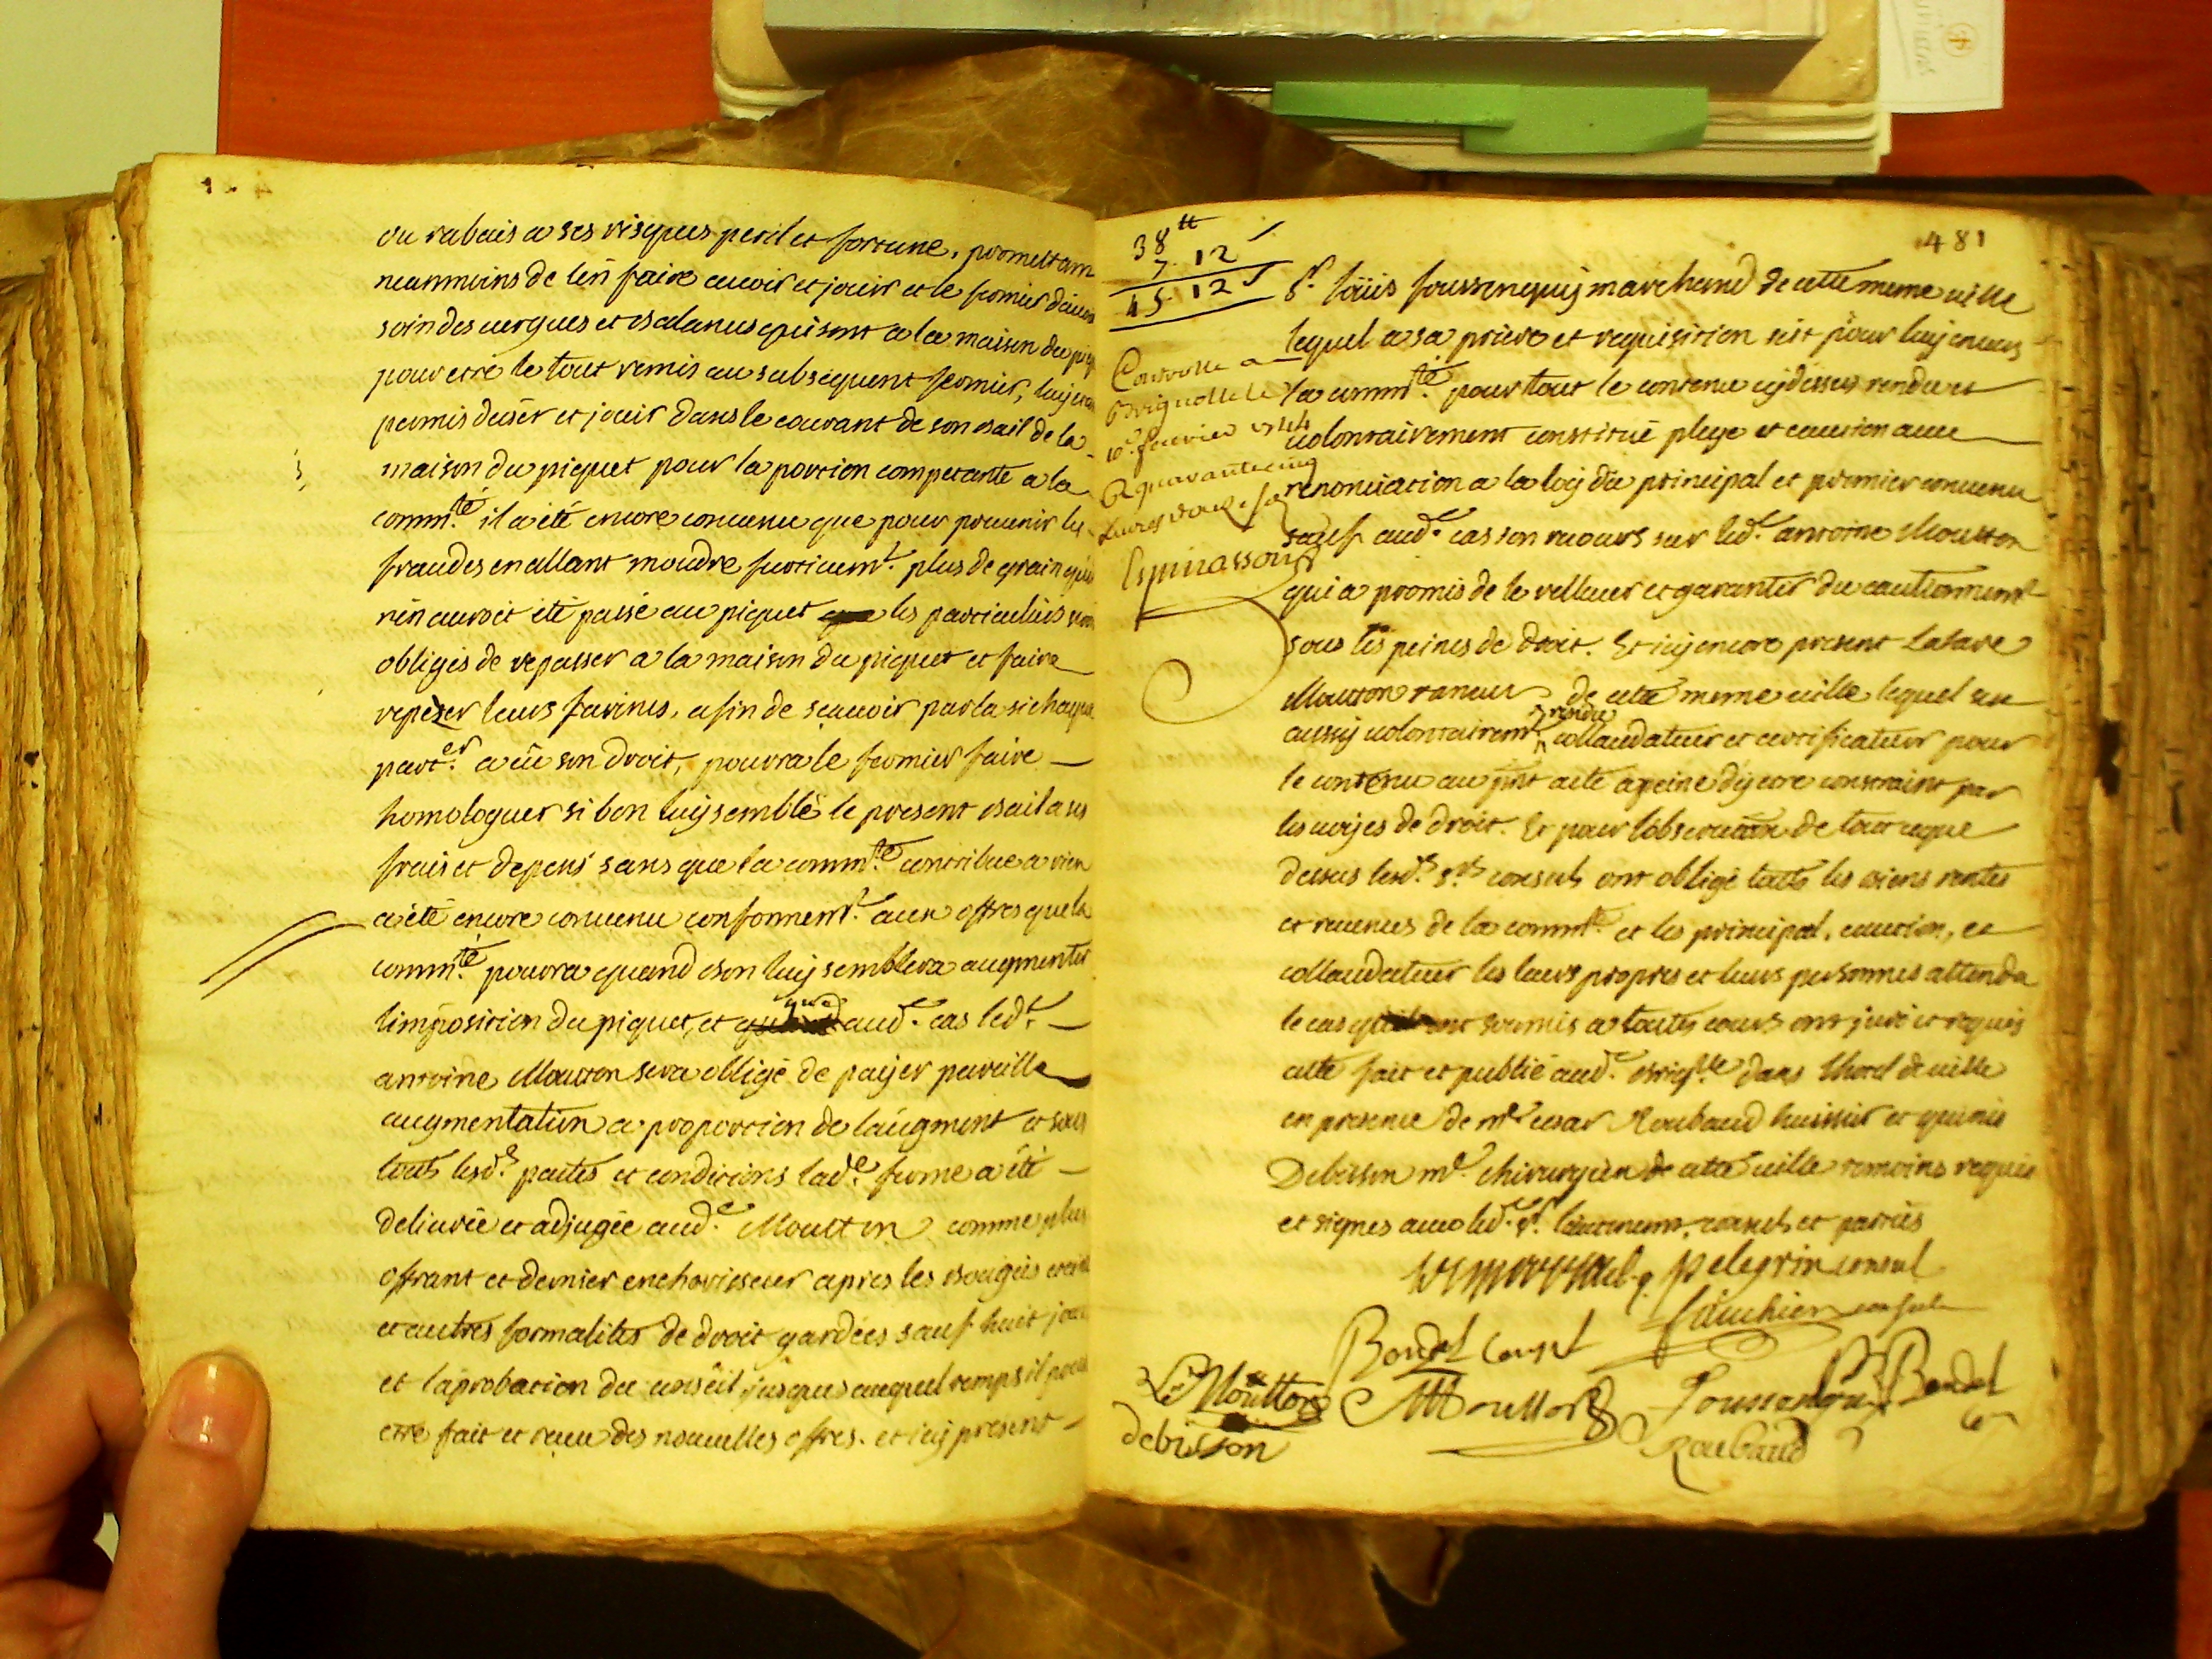 ou rabais a ses risques peril et fortune, promettant
neanmoins de len faire avoir et jouir et le fermier d'avoir
soin des vergues et balances qui sont a la maison du piq
pour etre le tout remis au subsequent fermier, luy
permis duser et jouir dans le courant de son bail de la
maison du piquet pour la portion competante a la
comm.té il a été encore convenu que pour prevenir les
fraudes en allant moudre furtivem.t plus de grain qu'il
n'en auroit été passé au piquet les particuliers
obligés de repasser a la maison du piquet et faire
repeser leurs farines, afin de sçavoir par la si chaque
part.er a eü son droit, pourra le fermier faire
homologuer si bon luy semble le present bail a ses
frais et depens sans que la comm.té contribue a rien
a été encore convenu conformem.t aux offres que la
comm.té pourra quand bon luy semblera augmenter
limposition du piquet, et que aud.e cas led.t
antoine Moutton sera obligé de payer pareille
augmentation a proportion de laugment et sous
touts lesd.s pactes et conditions lad.e ferme a été
delivrée et adjugée aud.e Moutton comme plus
offrant et dernier encherisseur apres les bougies
et autres formalites de droit gardées sauf huit jour
et laprobation du conseil jusques auquel temps il
etre fait et receu des nouvelles offres. et icy present
481
38 tt
7. 12
45. 12 s
Controllé a
Brignolle le
10.e fevrier 1744
R quarante cinq
livres douze s.
Espinassous
S.r loüis foussenquy marchand de cette meme ville
lequel a sa priere et requisition s'est pour luy envers
la comm.té pour tout le contenu cydessus rendu et
volontairement constitué plege et caution avec
renonciation a la loy du principal et premier convenu
sauf aud.e cas son recours sur led.t antoine Moutton
qui a promis de le rellever et garantir du cautionnement
sous les peines de droit. Et icy encore present Lasare
Moutton taneur de cette meme ville lequel
aussy volontairem.t rendu collaudateur et certificateur pour
le contenu au pnt acte a peine dy etre constraint par
les voyes de droit. Et pour l'observation de tout ce que
dessus lesd.s s.rs consuls ont obligé touts les biens rentes
et revenus de la comm.té et les principal, caution, et
collaudateur les leurs propres et leurs personnes attendu
le cas soumis a toutes cours ont juré et requis
acte fait et publié aud.e brig.lle dans lhotel de ville
en presence de m.e cesar Roubaud huissier et
Debisson m.e chirurgien de cette ville temoins requis
et signés avec led.t s.r lieutenent, consuls et parties
pelegrin consul
Boudet Consul
fauchier consul
LS Moutton
AMoutton
foussenquy
Boudet
debisson
Roubaud